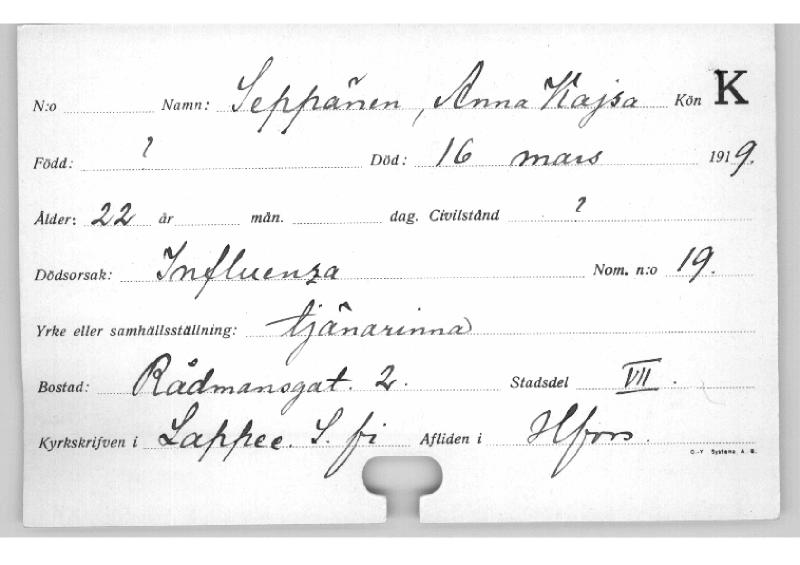 N:o Namn: Seppänen, Anna Kajsa Kön K
Född: ? Död: 16 mars 1919.
Ålder: 22 år mån. dag. Civilstånd ?
Dödsorsak: Influenza Nom. n:o 19.
Yrke eller samhällsställning: tjänarinna
Bostad: Rådmansgat. 2. Stadsdel VII.
Kyrkskrifven i Lappee. S. fi Afliden i Hfors.
O.-Y Systema, A. B.